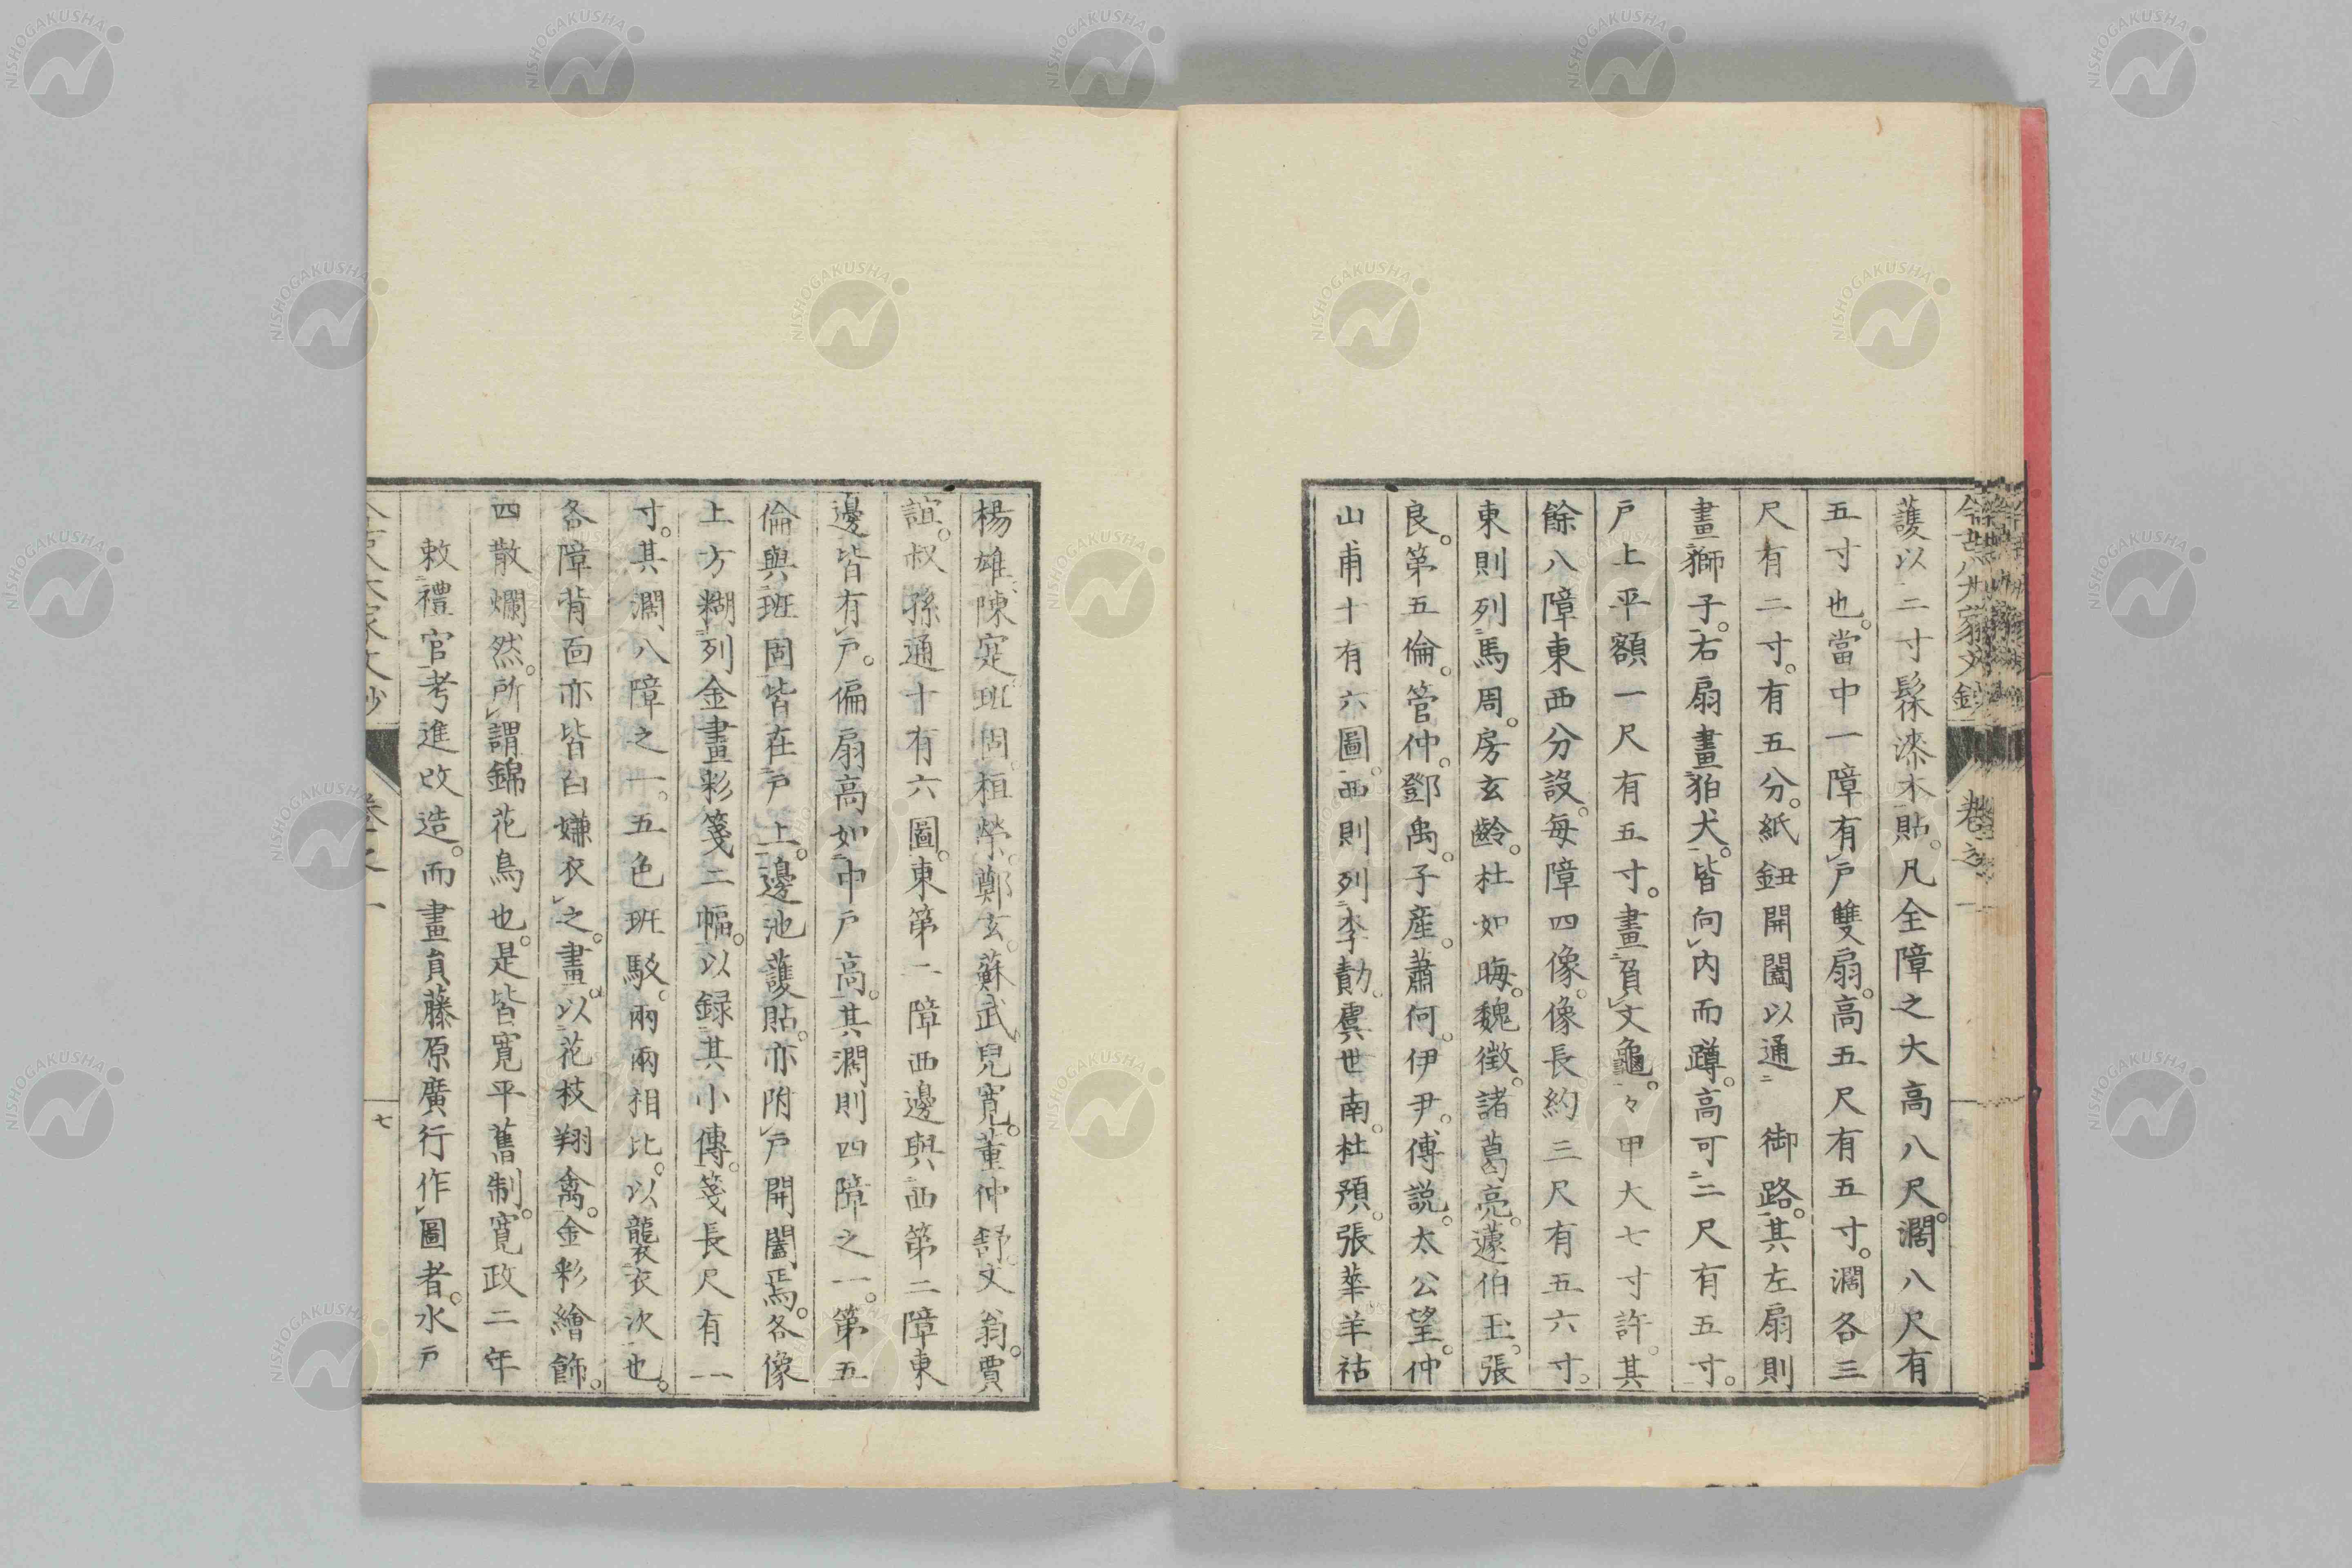 護以二寸髹漆木貼。凡全障之大高八尺。濶八尺有
五寸也。當中一障有戸雙扇。高五尺有五寸。濶各三
尺有二寸。有五分。紙鈕開闔以通 御路。其左扇則
畫獅子。右扇畫狛犬。皆向內而蹲。高可二尺有五寸。
戸上平額一尺有五寸。畫負文龜。々甲大七寸許。其
餘八障東西分設。每障四像。像長約三尺有五六寸。
東則列馬周。房玄齡。杜如晦。魏徵。諸葛亮。蘧伯玉。張
良。第五倫。管仲。鄧禹。子産。蕭何。伊尹。傅説。太公望。仲
山甫十有六圖。西則列李勣。虞世南。杜預。張華羊祜
楊雄。陳寔班固。桓榮。鄭玄。蘇武。兒寬。董仲舒。文翁。賈
誼。叔孫通十有六圖。東第一障西邊與西第二障東
邊皆有戸。偏扇高如中戸高。其濶則四障之一。第五
倫與班固皆在戸上。邊池護貼。亦附戸開闔焉。各像
上方糊列金畫彩箋二幅。以録其小傳。箋長尺有一
寸。其濶八障之一。五色班駁。兩兩相比。以襲衣次也。
各障背面亦皆白縑衣之。畫以花枝翔禽。金彩繪飾。
四散爛然。所謂錦花鳥也。是皆寛平舊制。寛政二年
敕禮官考進改造。而畫負藤原廣行作圖者。水戸
七
NISHOGAKUSHA